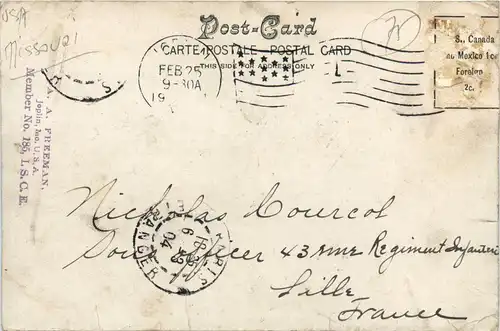 USA
Missouri
A. A. FREEMAN,
Joplin, Mo. U.S.A.
Member No. 185, I. S. C. E.
Post-Card
CARTE POSTALE POSTAL CARD
THIS SIDE FOR ADDRESS ONLY
FEB 25
9-30A
19
S., Canada
Mexico 1c
Foreign
2c.
Nicholas Courcol
Sous officer 43 ème Regiment Infanterie
Lille
France
PARIS
ETRANGER
04